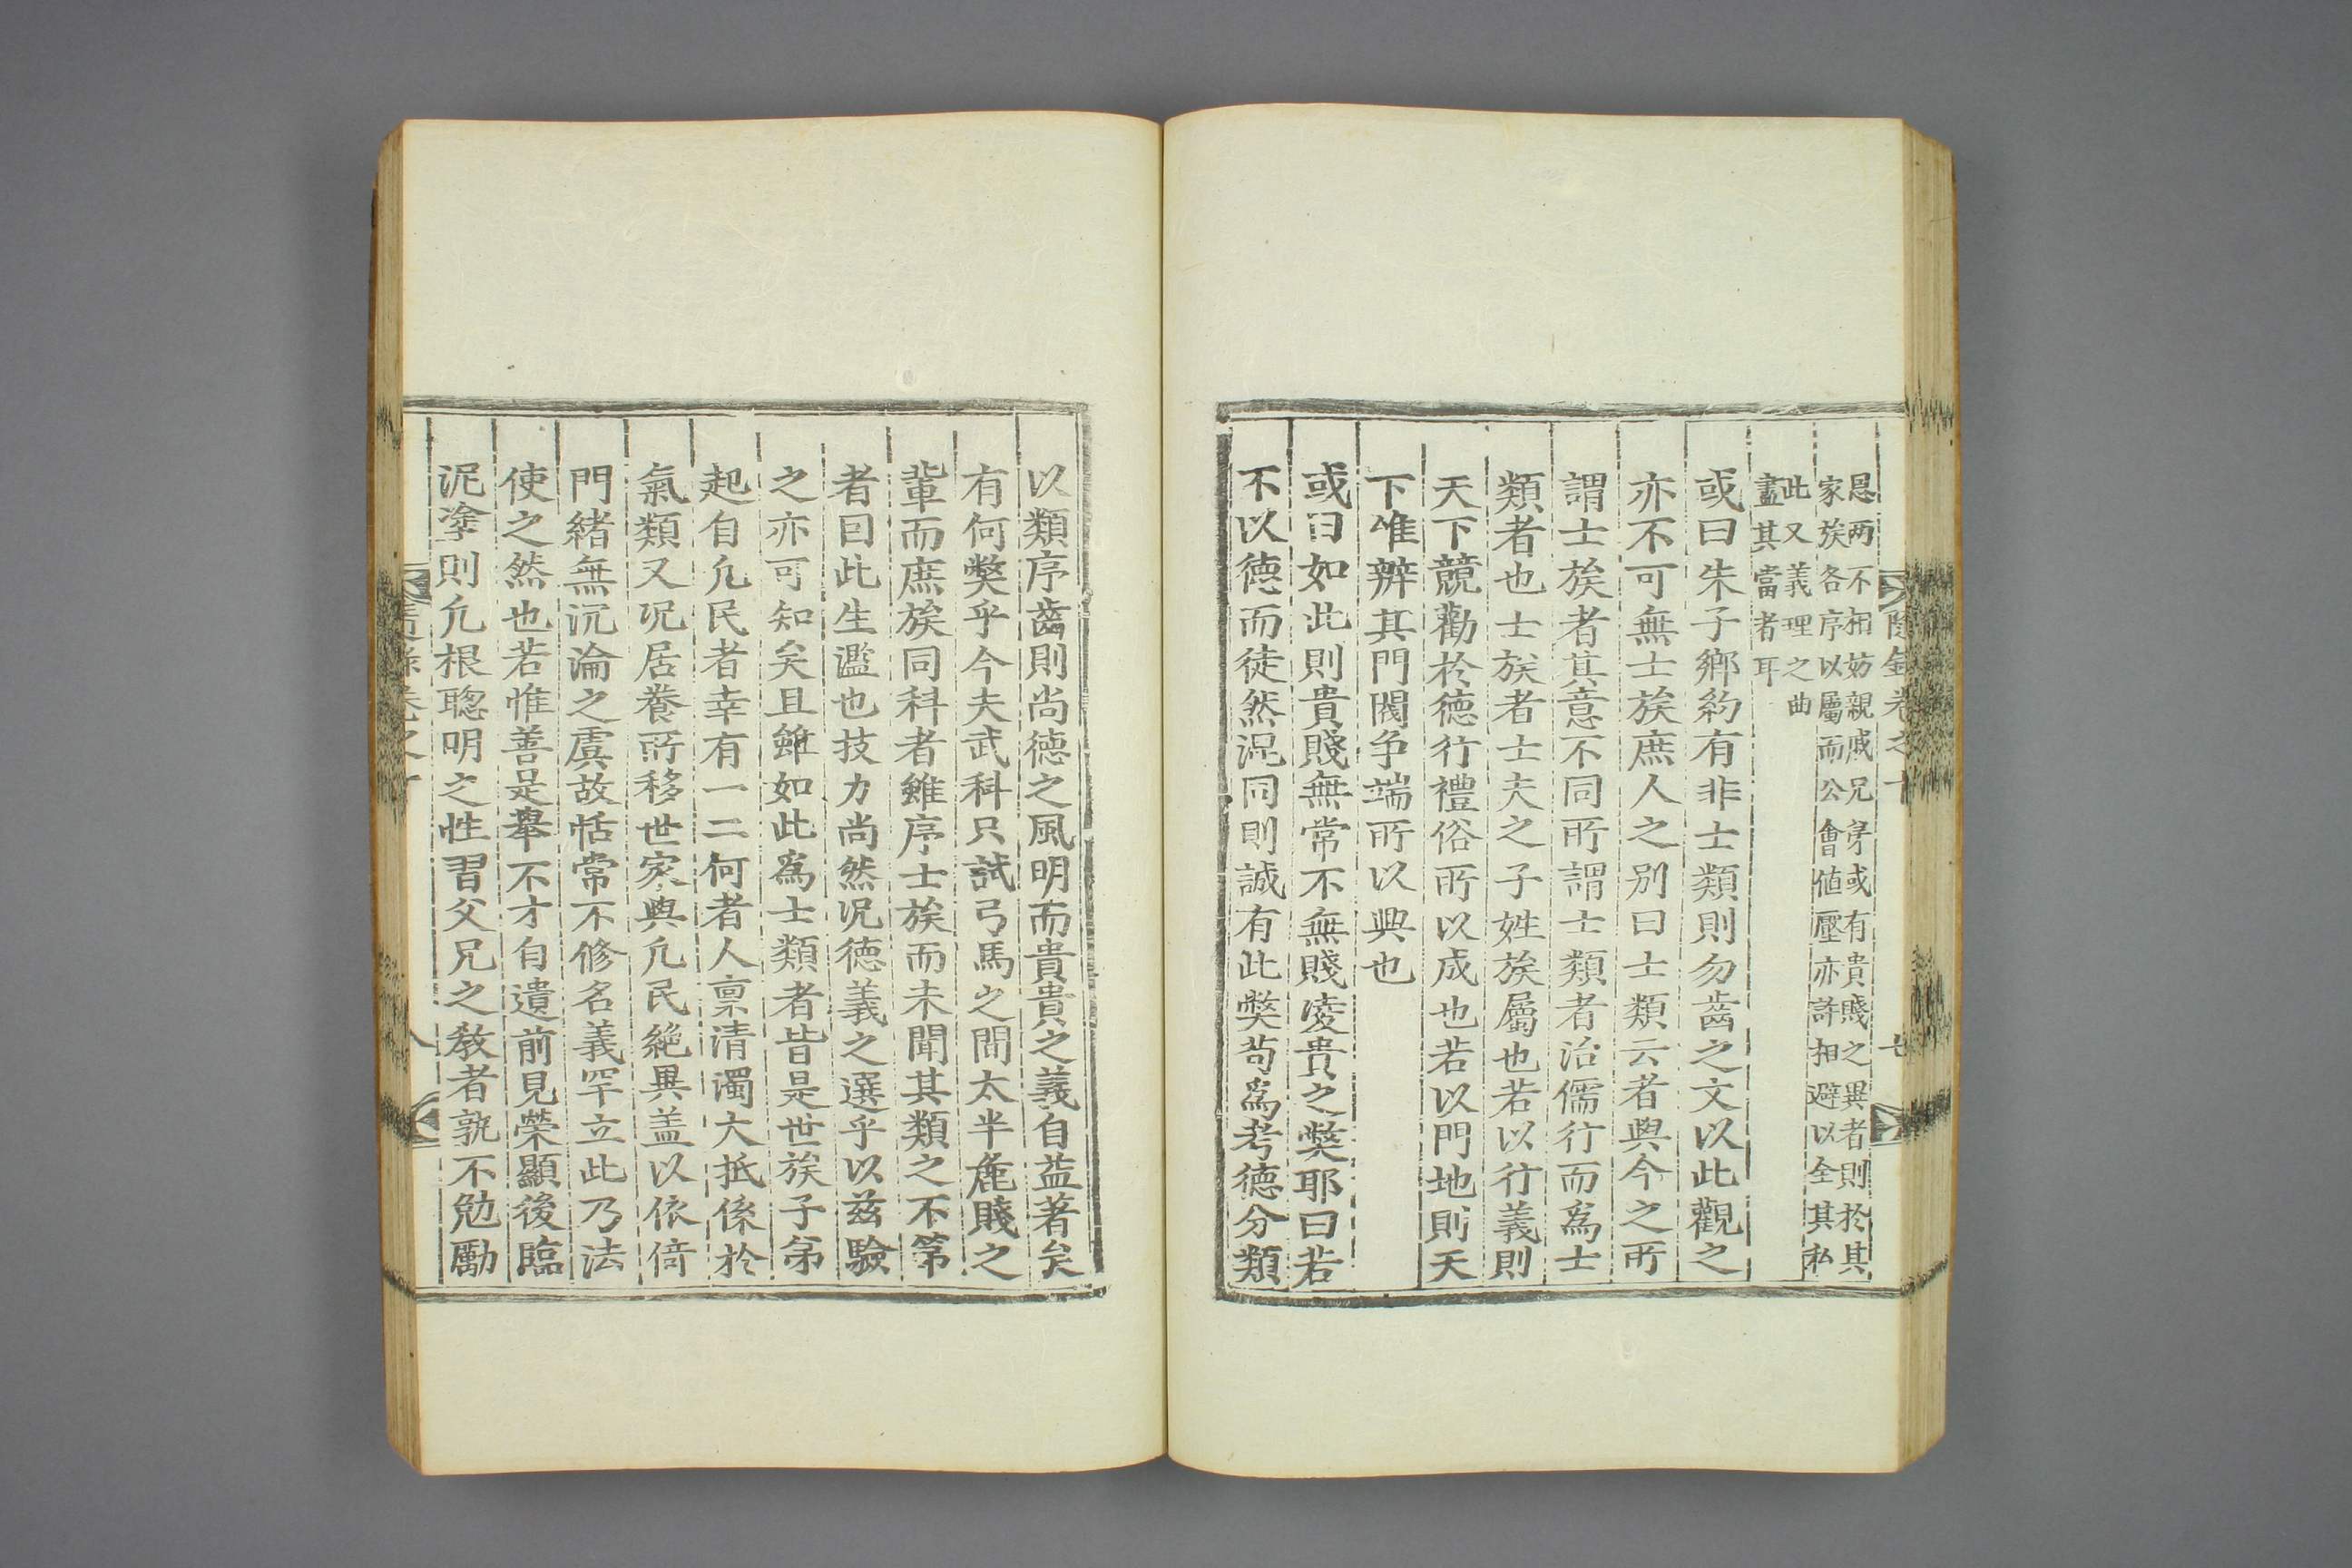 恩兩不相妨親戚兄弟或有貴賤之異者則於其
家族各序以屬而公會値壓亦許相避以全其私
此又義理之曲
盡其當者耳
或曰朱子鄕約有非士類則勿齒之文以此觀之
亦不可無士族庶人之别曰士類云者與今之所
謂士族者其意不同所謂士類者治儒行而爲士
類者也士族者士夫之子姓族屬也若以行義則
天下競勸於德行禮俗所以成也若以門地則天
下惟辨其門閥争端所以興也
或曰如此則貴賤無常不無賤凌貴之弊耶曰若
不以德而徒然混同則誠有此弊苟爲考德分類
以類序齒則尚德之風明而貴貴之義自益著矣
有何弊乎今夫武科只試弓馬之間太半麄賤之
輩而庶族同科者雖序士族而未聞其類之不第
者因此生濫也技力尚然况德義之選乎以兹驗
之亦可知矣且雖如此爲士類者皆是世族子弟
起自凡民者幸有一二何者人禀清濁大抵係於
氣類又况居養所移世家與凡民絶異盖以依倚
門緖無沉淪之虞故恬常不修名義罕立此乃法
使之然也若惟善是擧不才自遺前見榮顯後臨
泥塗則凡根聦明之性習父兄之敎者孰不勉勵